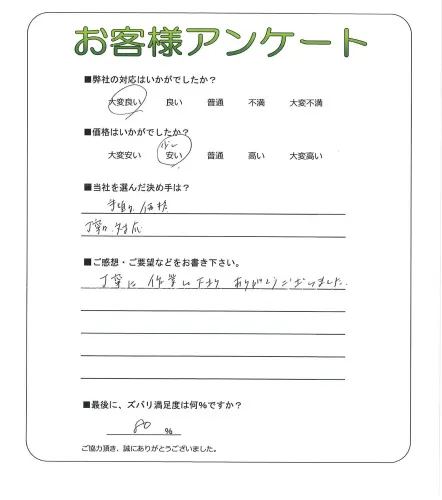 お客様アンケート
■弊社の対応はいかがでしたか？
大変良い 良い 普通 不満 大変不満
■価格はいかがでしたか？
少し
大変安い 安い 普通 高い 大変高い
■当社を選んだ決め手は？
価格
丁寧な対応
■ご感想・ご要望などをお書き下さい。
丁寧に 作業して下さり ありがとうございました.
■最後に、ズバリ満足度は何％ですか？
80 ％
ご協力頂き、誠にありがとうございました。